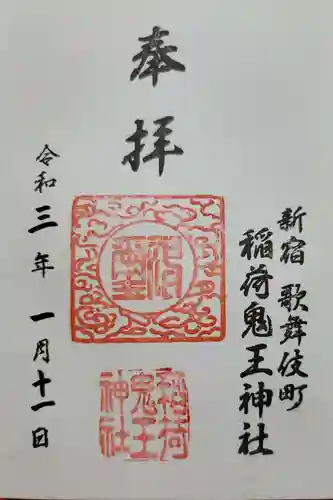 奉拝
新宿 歌舞伎町
稲荷鬼王神社
令和三年 一月十一日
稲荷
鬼王
神社